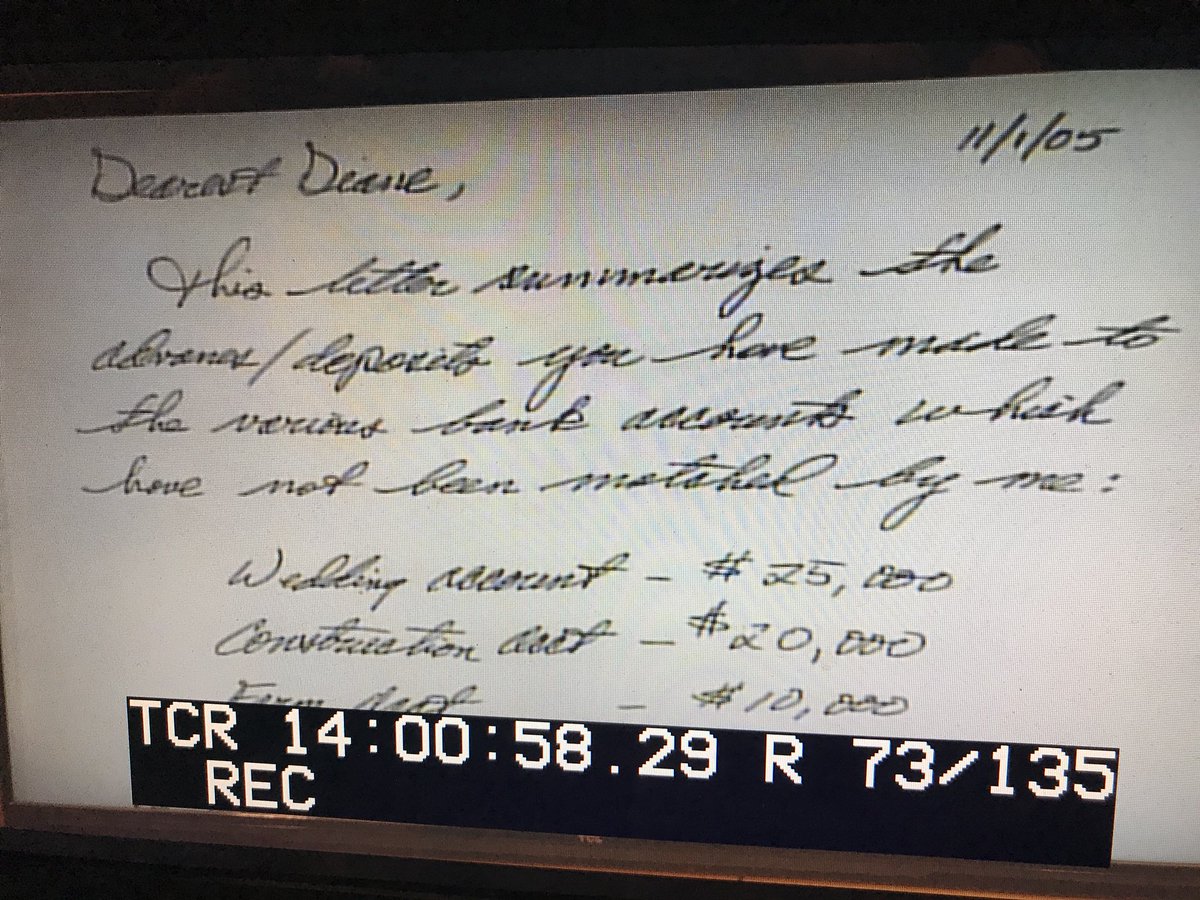 11/1/05
Dearest Diane,
This letter summarizes the
advances/deposits you have made to
the various bank accounts which
have not been matched by me:
Wedding account - $25,000
Construction acct - $20,000
- $10,000
TCR 14:00:58.29 R 73/135
REC